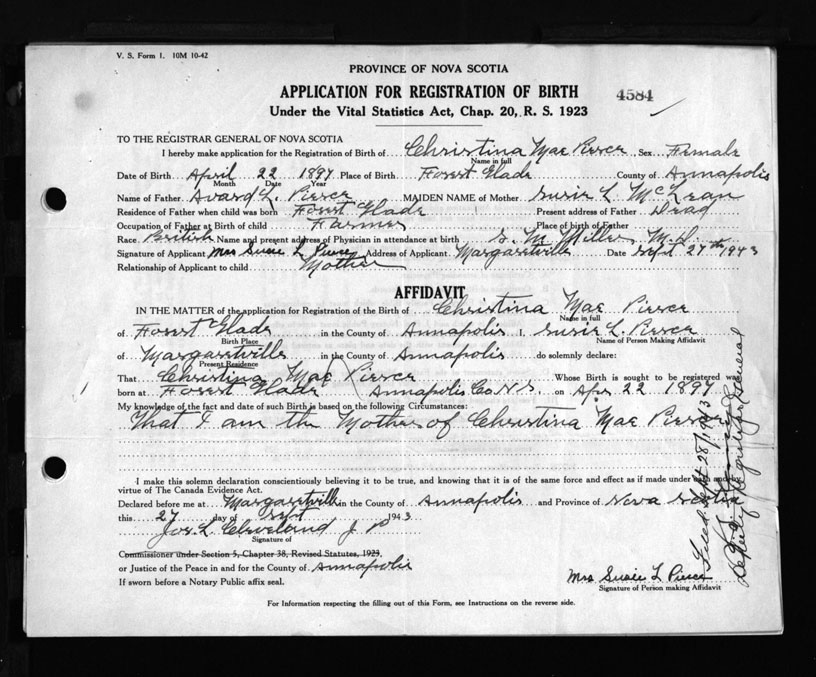 V. S. Form 1. 10M 10-42
PROVINCE OF NOVA SCOTIA
APPLICATION FOR REGISTRATION OF BIRTH 4584
Under the Vital Statistics Act, Chap. 20, R. S. 1923
TO THE REGISTRAR GENERAL OF NOVA SCOTIA
I hereby make application for the Registration of Birth of Christina Mae Pierce Sex Female
Name in full
Date of Birth April 22 1897 Place of Birth Forest Glade County of Annapolis
Month Date Year
Name of Father Avard L. Pierce MAIDEN NAME of Mother Susie L McLean
Residence of Father when child was born Forest Glade Present address of Father Dead
Occupation of Father at Birth of child Farmer Place of birth of Father
Race British Name and present address of Physician in attendance at birth S. M Miller, M.D.
Signature of Applicant Mrs Susie L Pierce Address of Applicant Margaretville Date Sept 27th 1943
Relationship of Applicant to child Mother
AFFIDAVIT
IN THE MATTER of the application for Registration of the Birth of Christina Mae Pierce
Name in full
of Forest Glade in the County of Annapolis I, Susie L. Pierce
Birth Place Name of Person Making Affidavit
of Margaretville in the County of Annapolis do solemnly declare:
Present Residence
That Christina Mae Pierce Whose Birth is sought to be registered was
born at Forest Glade Annapolis Co. N.S. on Apr 22 1897
My knowledge of the fact and date of such Birth is based on the following Circumstances:
That I am the Mother of Christina Mae Pierce
I make this solemn declaration conscientiously believing it to be true, and knowing that it is of the same force and effect as if made under oath and by
virtue of The Canada Evidence Act.
Declared before me at Margaretville in the County of Annapolis and Province of Nova Scotia
this 27 day of Sept 1943
Jos. L. Cleveland J P
Signature of
Commissioner under Section 5, Chapter 38, Revised Statutes, 1923,
or Justice of the Peace in and for the County of Annapolis
If sworn before a Notary Public affix seal.
Mrs Susie L Pierce
Signature of Person making Affidavit
For Information respecting the filling out of this Form, see Instructions on the reverse side.
Sept 28/1943
Deputy Registrar General